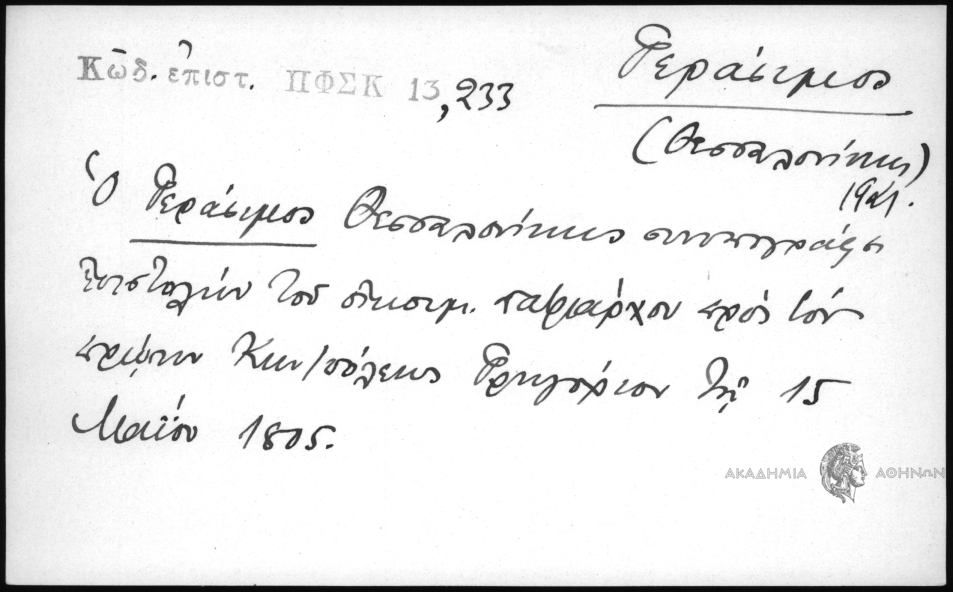 Κῶδ. ἐπιστ. ΠΦΣΚ 13, 233
Γεράσιμος
(Θεσσαλονίκης)
1921.
Ὁ Γεράσιμος Θεσσαλονίκης συνυπογράφει
ἐπιστολὴν τοῦ οἰκουμ. πατριάρχου πρὸς τὸν
πρώην Κων/πόλεως Γρηγόριον τῇ 15
Μαΐου 1805.
ΑΚΑΔΗΜΙΑ ΑΘΗΝΩΝ